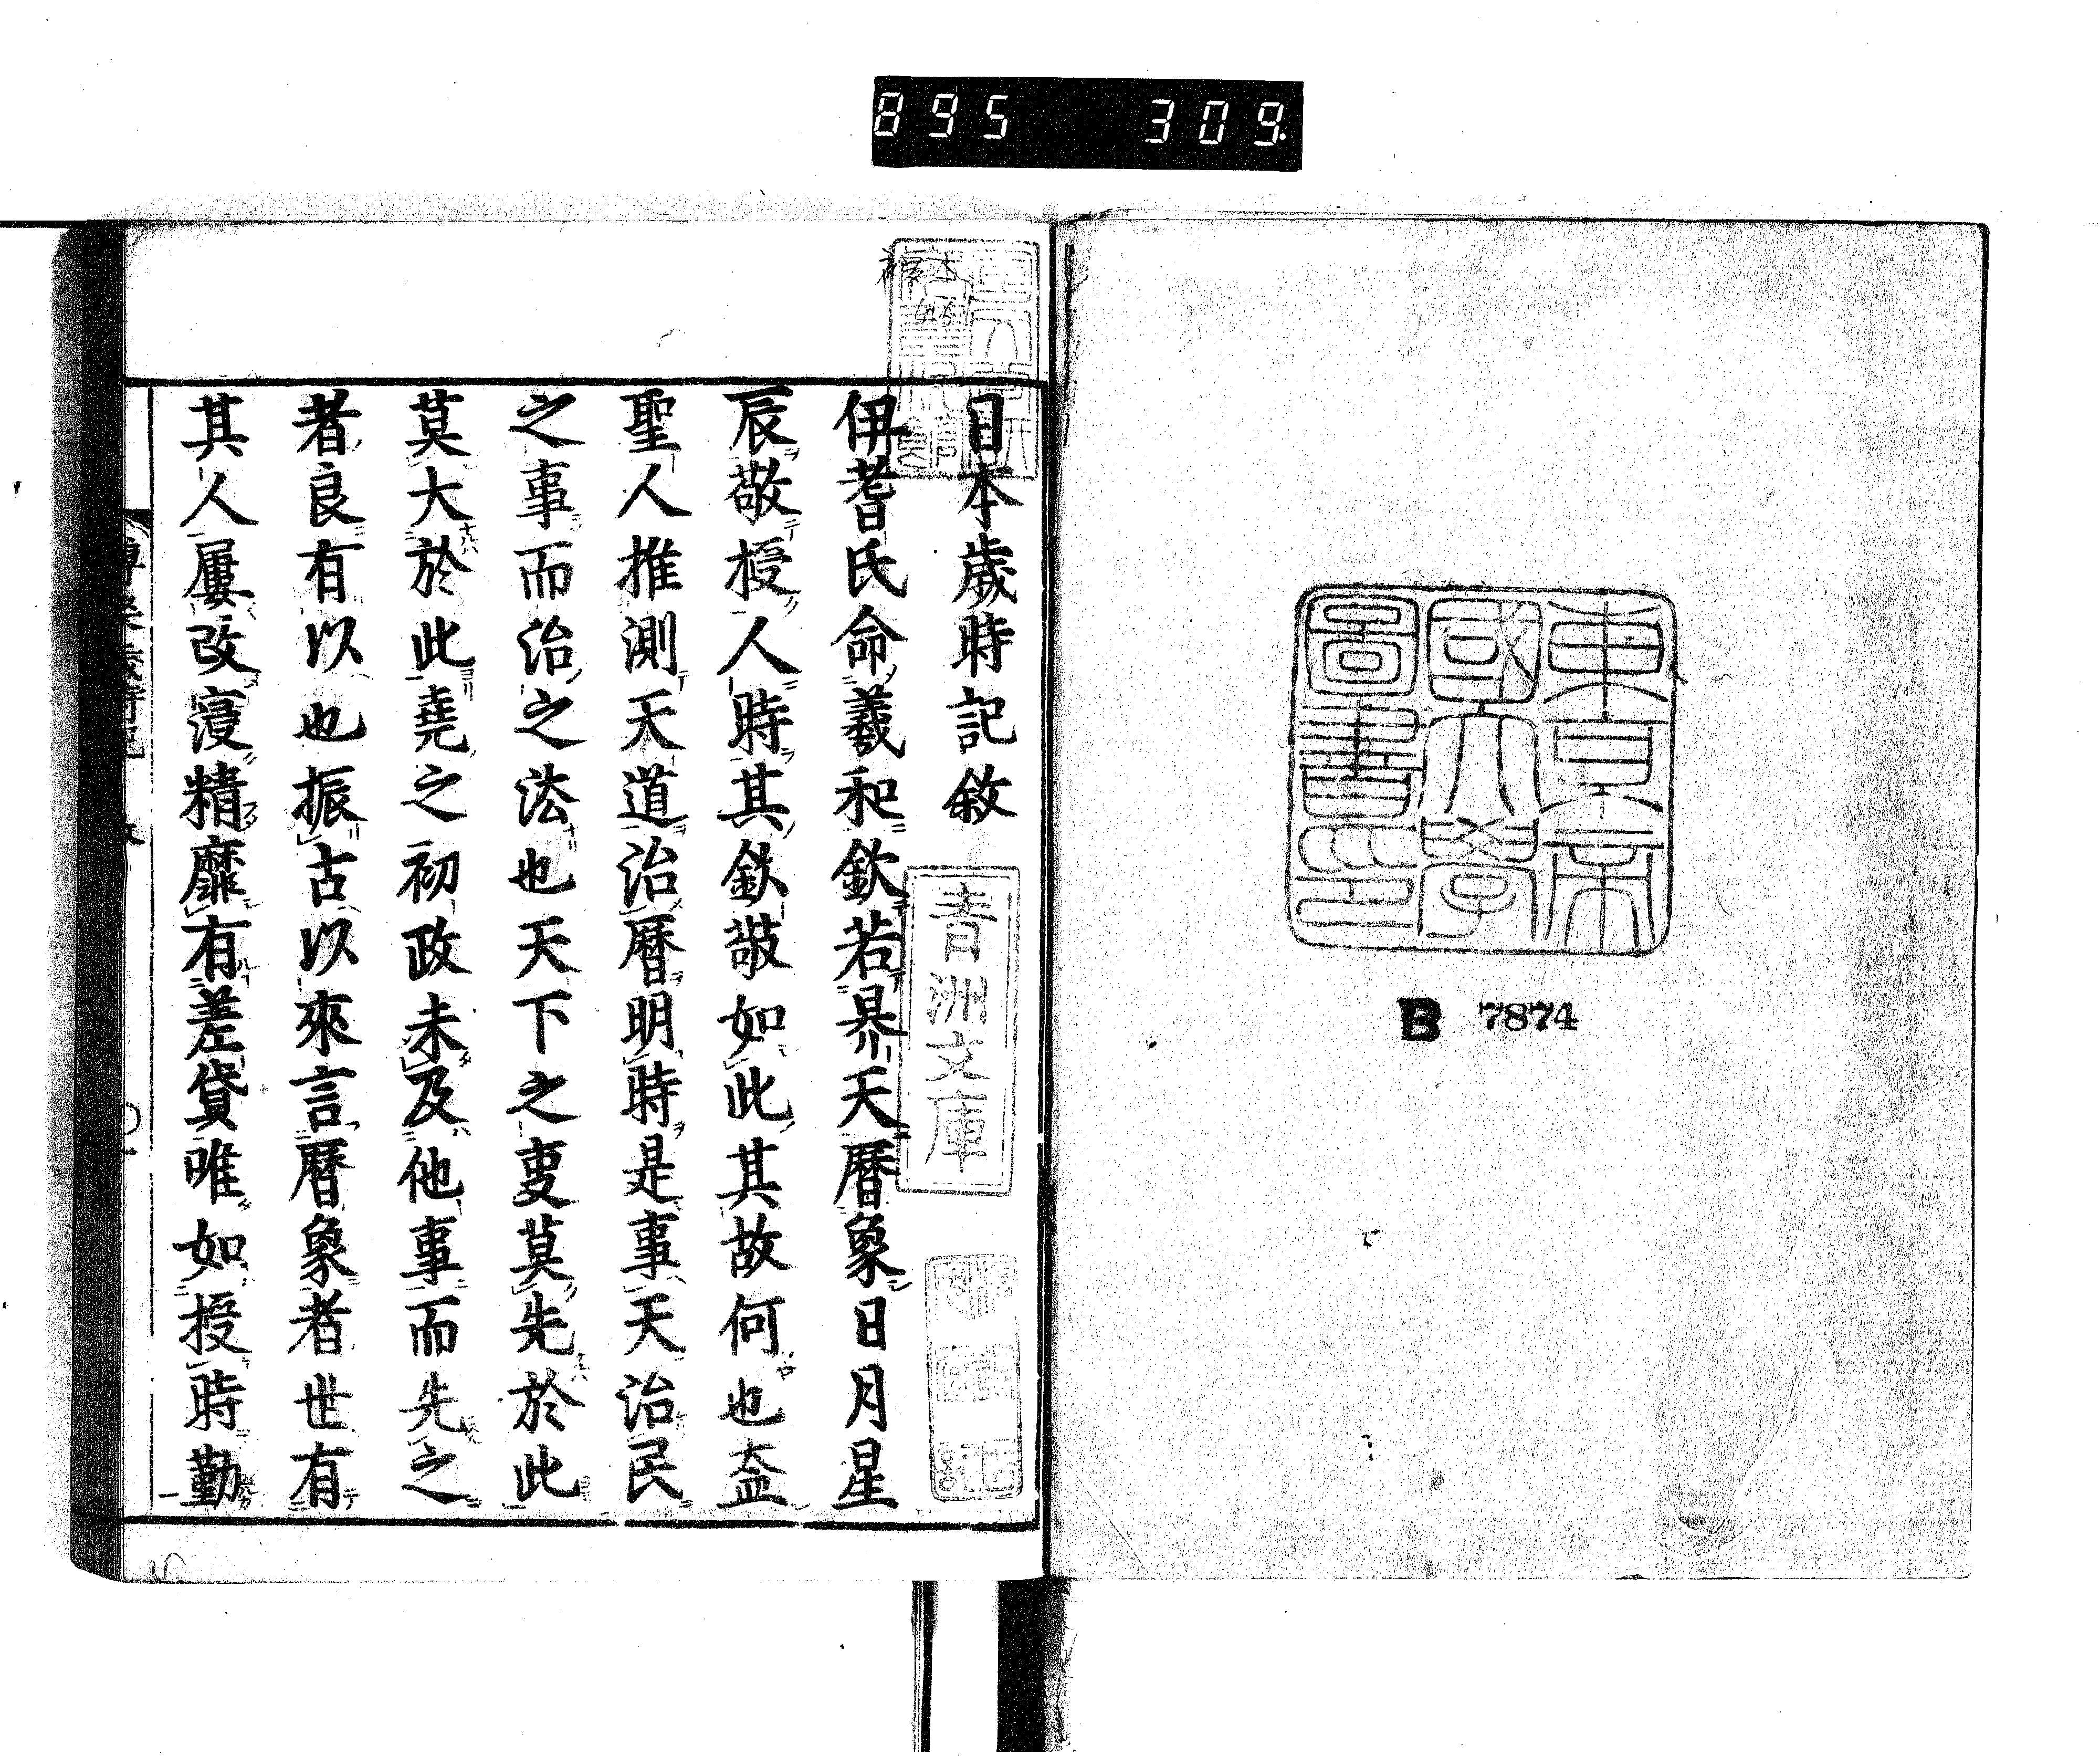 895 309.
東京帝
國大學
圖書印
B 7874
日本歲時記敘
青洲文庫
伊耆氏命羲和欽若昦天曆象日月星
辰敬授人時其欽敬如此其故何也盖
聖人推測天道治曆明時是事天治民
之事而治之法也天下之叓莫先於此
莫大於此堯之初政未及他事而先之
者良有以也振古以來言曆象者世有
其人屢改寖精靡有差貸唯如授時勤